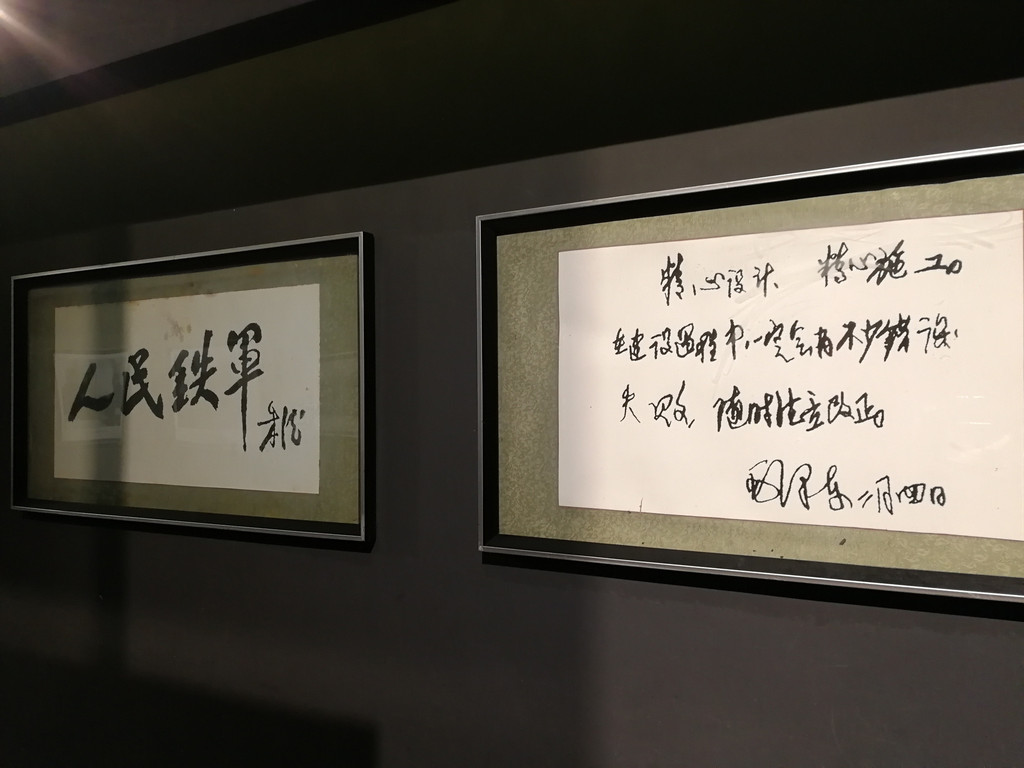 人民鉄軍
精心设计 精心施工
在建设過程中一定会有不少错误
失败 随时注意改正
毛泽东 二月四日